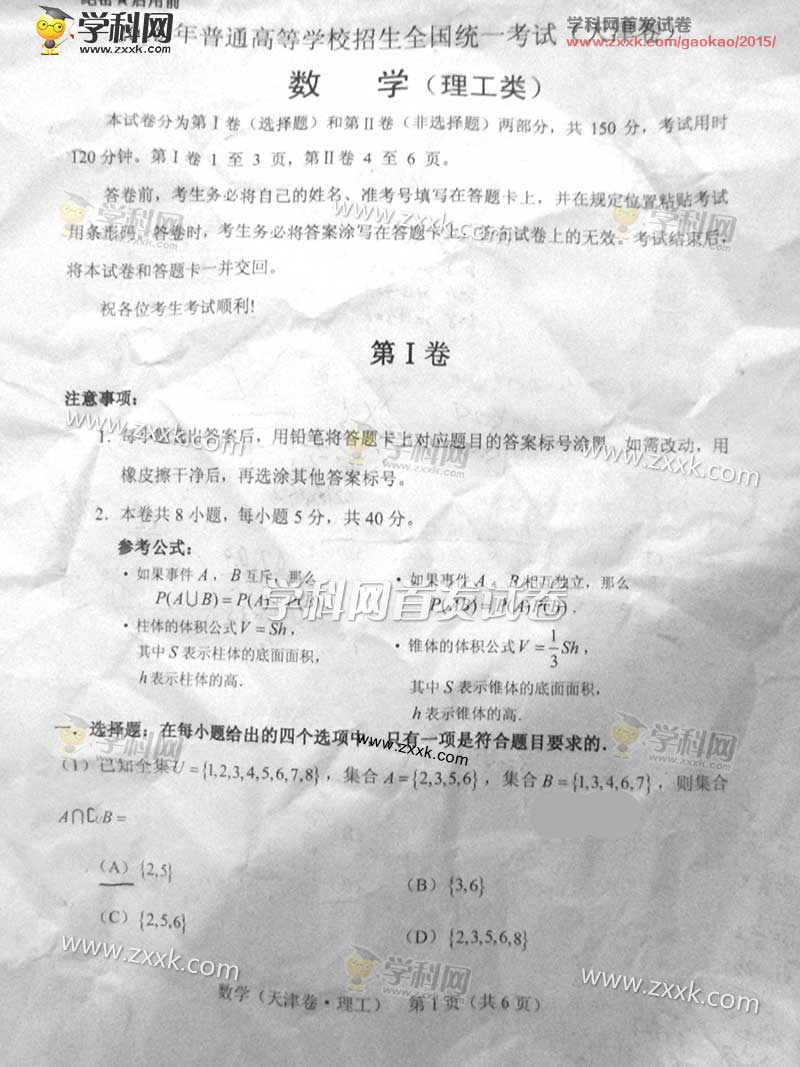 绝密★启用前
年普通高等学校招生全国统一考试（天津卷）
学科网首发试卷
www.zxxk.com/gaokao/2015/
学科网
www.zxxk.com
数 学（理工类）
本试卷分为第Ⅰ卷（选择题）和第Ⅱ卷（非选择题）两部分，共 150 分，考试用时
120 分钟。第Ⅰ卷 1 至 3 页，第Ⅱ卷 4 至 6 页。
答卷前，考生务必将自己的姓名、准考号填写在答题卡上，并在规定位置粘贴考试
用条形码。答卷时，考生务必将答案涂写在答题卡上，答在试卷上的无效。考试结束后，
将本试卷和答题卡一并交回。
祝各位考生考试顺利!
第Ⅰ卷
注意事项：
1. 每小题选出答案后，用铅笔将答题卡上对应题目的答案标号涂黑。如需改动，用
橡皮擦干净后，再选涂其他答案标号。
2. 本卷共 8 小题，每小题 5 分，共 40 分。
参考公式：
· 如果事件 A ，B 互斥，那么
P(A∪B) = P(A)+P(B)
· 如果事件 A 、B 相互独立，那么
P(AB) = P(A)P(B) .
学科网首发试卷
· 柱体的体积公式 V = Sh ，
其中 S 表示柱体的底面面积，
h 表示柱体的高.
· 锥体的体积公式 V = 1/3 Sh ，
其中 S 表示锥体的底面面积，
h 表示锥体的高.
一．选择题：在每小题给出的四个选项中，只有一项是符合题目要求的．
(1) 已知全集 U = {1,2,3,4,5,6,7,8} ，集合 A = {2,3,5,6} ，集合 B = {1,3,4,6,7} ，则集合
A∩∁UB =
(A) {2,5}
(B) {3,6}
(C) {2,5,6}
(D) {2,3,5,6,8}
数学（天津卷·理工） 第 1 页（共 6 页）